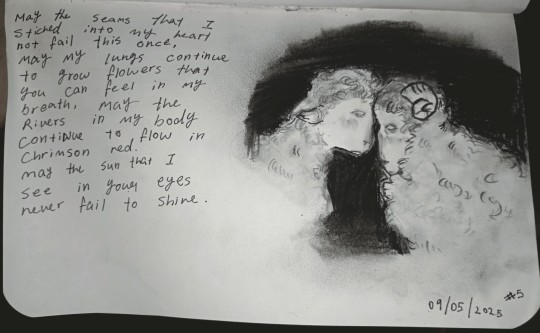 May the seams that I
stiched into my heart
not fail this once,
may my lungs continue
to grow flowers that
you can feel in my
breath, may the
Rivers in my body
continue to flow in
Chrimson red.
may the sun that I
see in your eyes
never fail to shine.
#5
09/05/2025